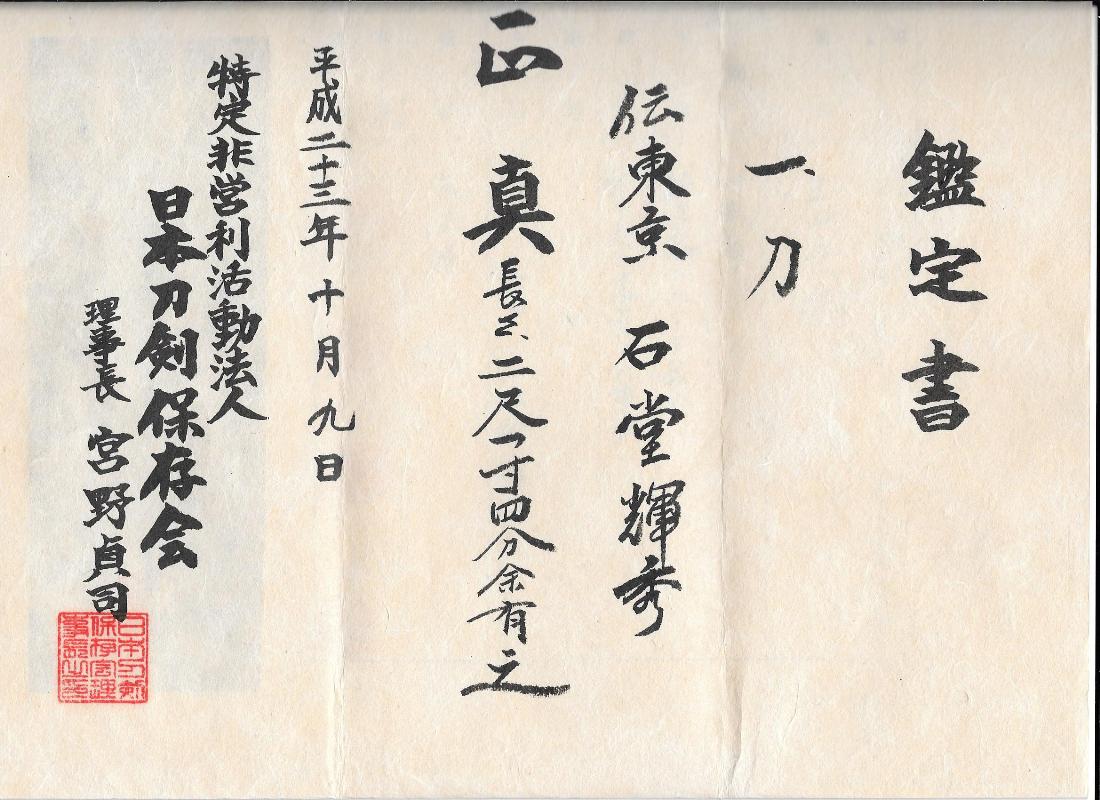 鑑定書
一、刀
伝東京 石堂輝秀
正真 長さ、二尺一寸四分余有之
平成二十三年十月九日
特定非営利活動法人
日本刀剣保存会
理事長 宮野貞司